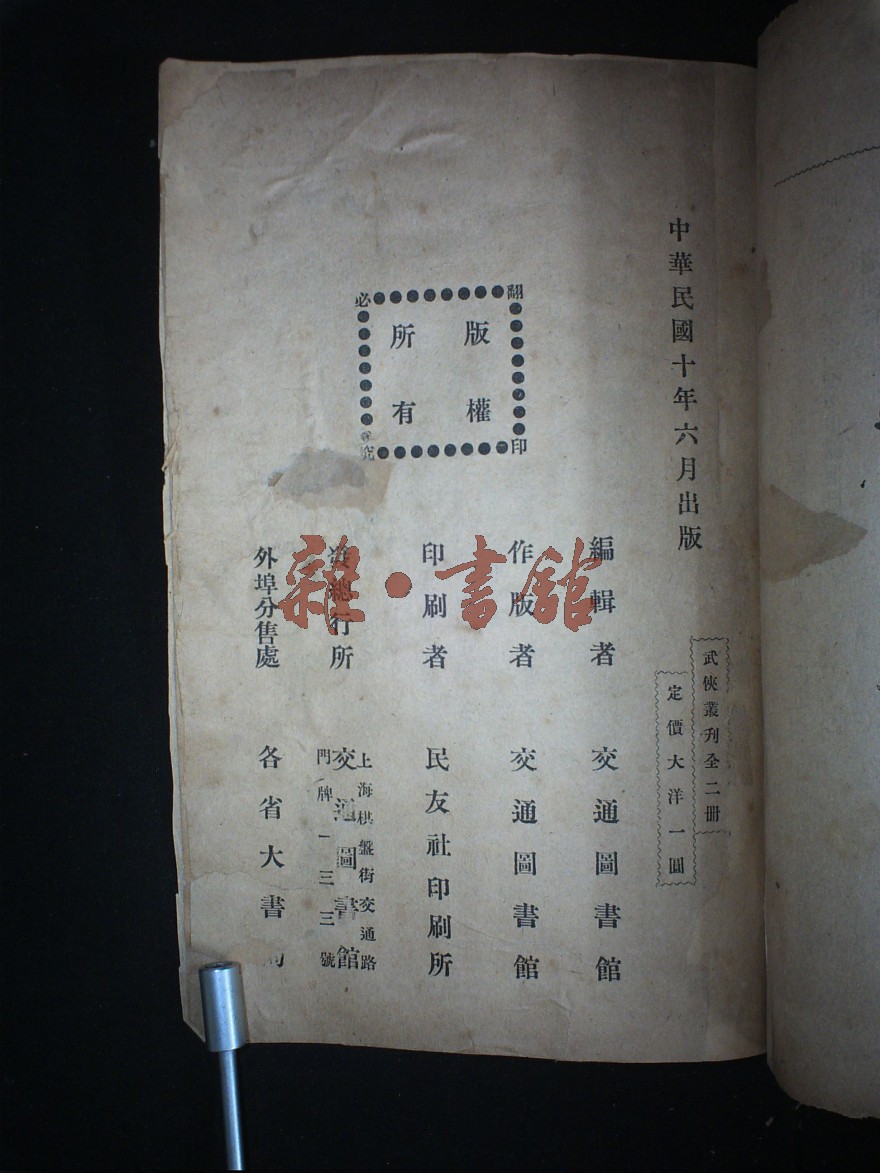 中華民國十年六月出版
武俠叢刊全二冊
定價大洋一圓
翻印必究
版權所有
編輯者 交通圖書館
作版者 交通圖書館
印刷者 民友社印刷所
總發行所 上海棋盤街交通路 交通圖書館 門牌一三三號
外埠分售處 各省大書局
雜·書館